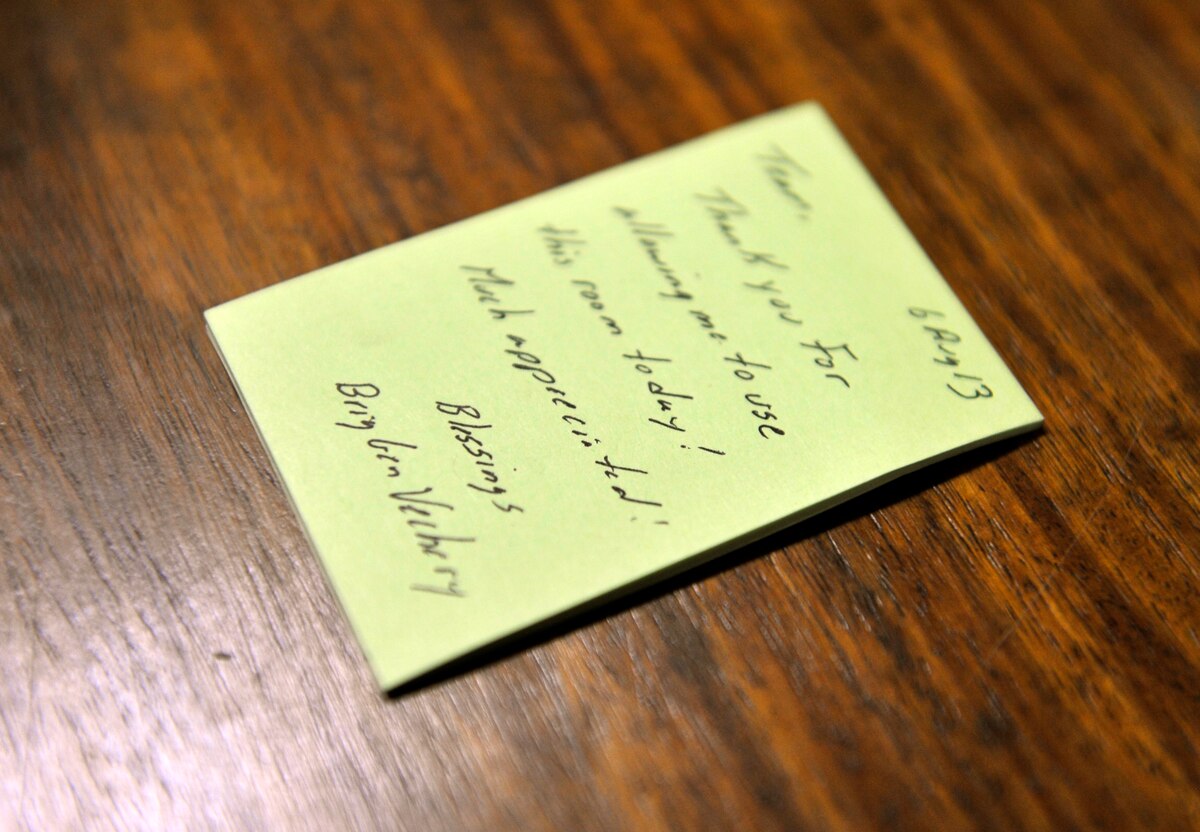 6 Aug 13
Team,
Thank you for
allowing me to use
this room today!
Much appreciated!
Blessings
Brig Gen Veerhery